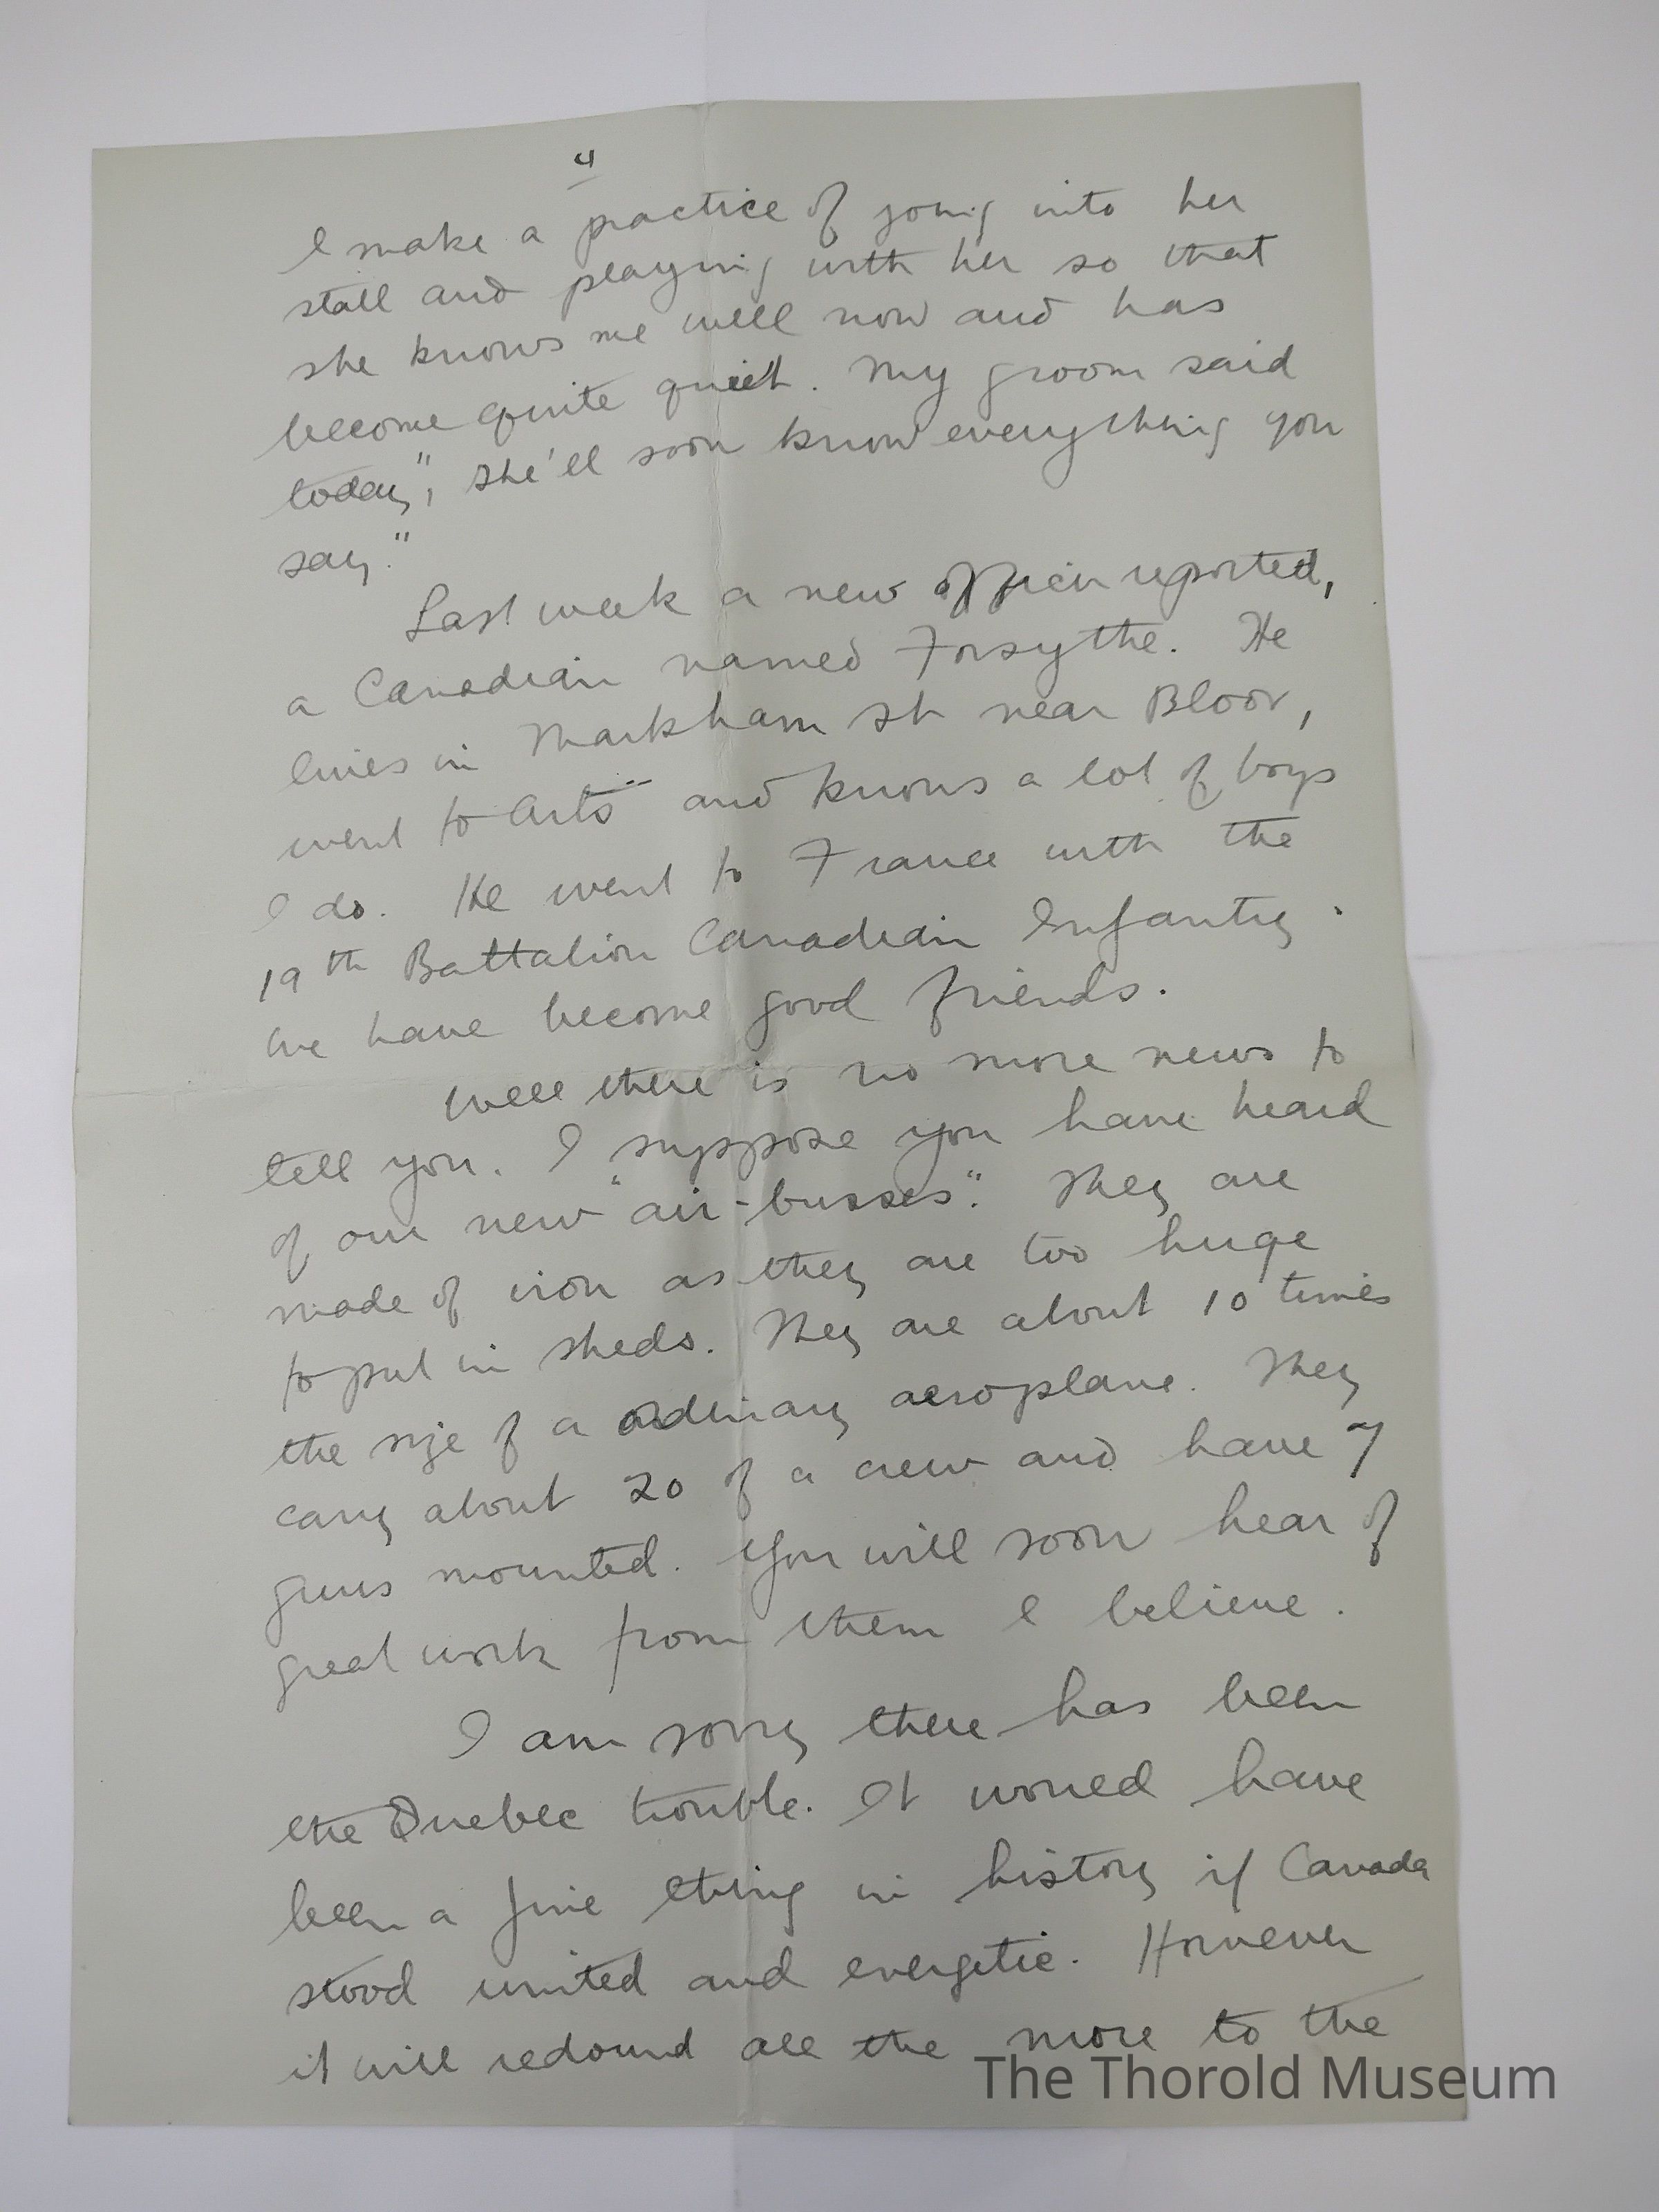 4
I make a practice of going into her
stall and playing with her so that
she knows me well now and has
become quite quiet. My groom said
today", she'll soon know everything you
say."
Last week a new officer reported,
a Canadian named Forsythe. He
lives in Markham St near Bloor,
went to "Arts" and knows a lot of boys
I do. He went to France with the
19th Battalion Canadian Infantry.
We have become good friends.
Well there is no more news to
tell you. I suppose you have heard
of our new "air-busses". They are
made of iron as they are too huge
to put in sheds. They are about 10 times
the size of a ordinary aeroplane. They
carry about 20 of a crew and have 7
guns mounted. You will soon hear of
great work from them I believe.
I am sorry there has been
the Quebec trouble. It would have
been a fine thing in history if Canada
stood united and energetic. However
it will redound all the more to the
The Thorold Museum